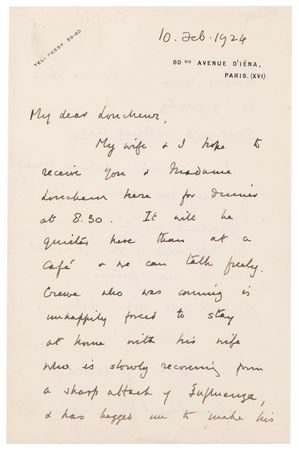 10. Feb. 1924
TEL: PASSY 99-50
60 BIS AVENUE D'IÉNA,
PARIS. (XVI)
My dear Loucheur,
My wife & I hope to
receive you & Madame
Loucheur here for dinner
at 8.30. It will be
quieter here than at a
Café & we can talk freely.
Crewe who was coming is
unhappily forced to stay
at home with his wife
who is slowly recovering from
a sharp attack of Influenza,
& has begged me to make his